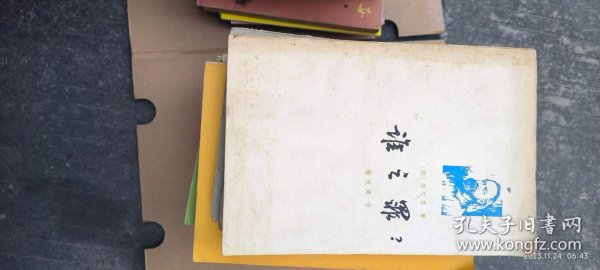 谁之罪?
〔俄〕赫尔岑 著
楼适夷 译
孔夫子旧书网
www.kongfz.com
2023.11.24 06:43